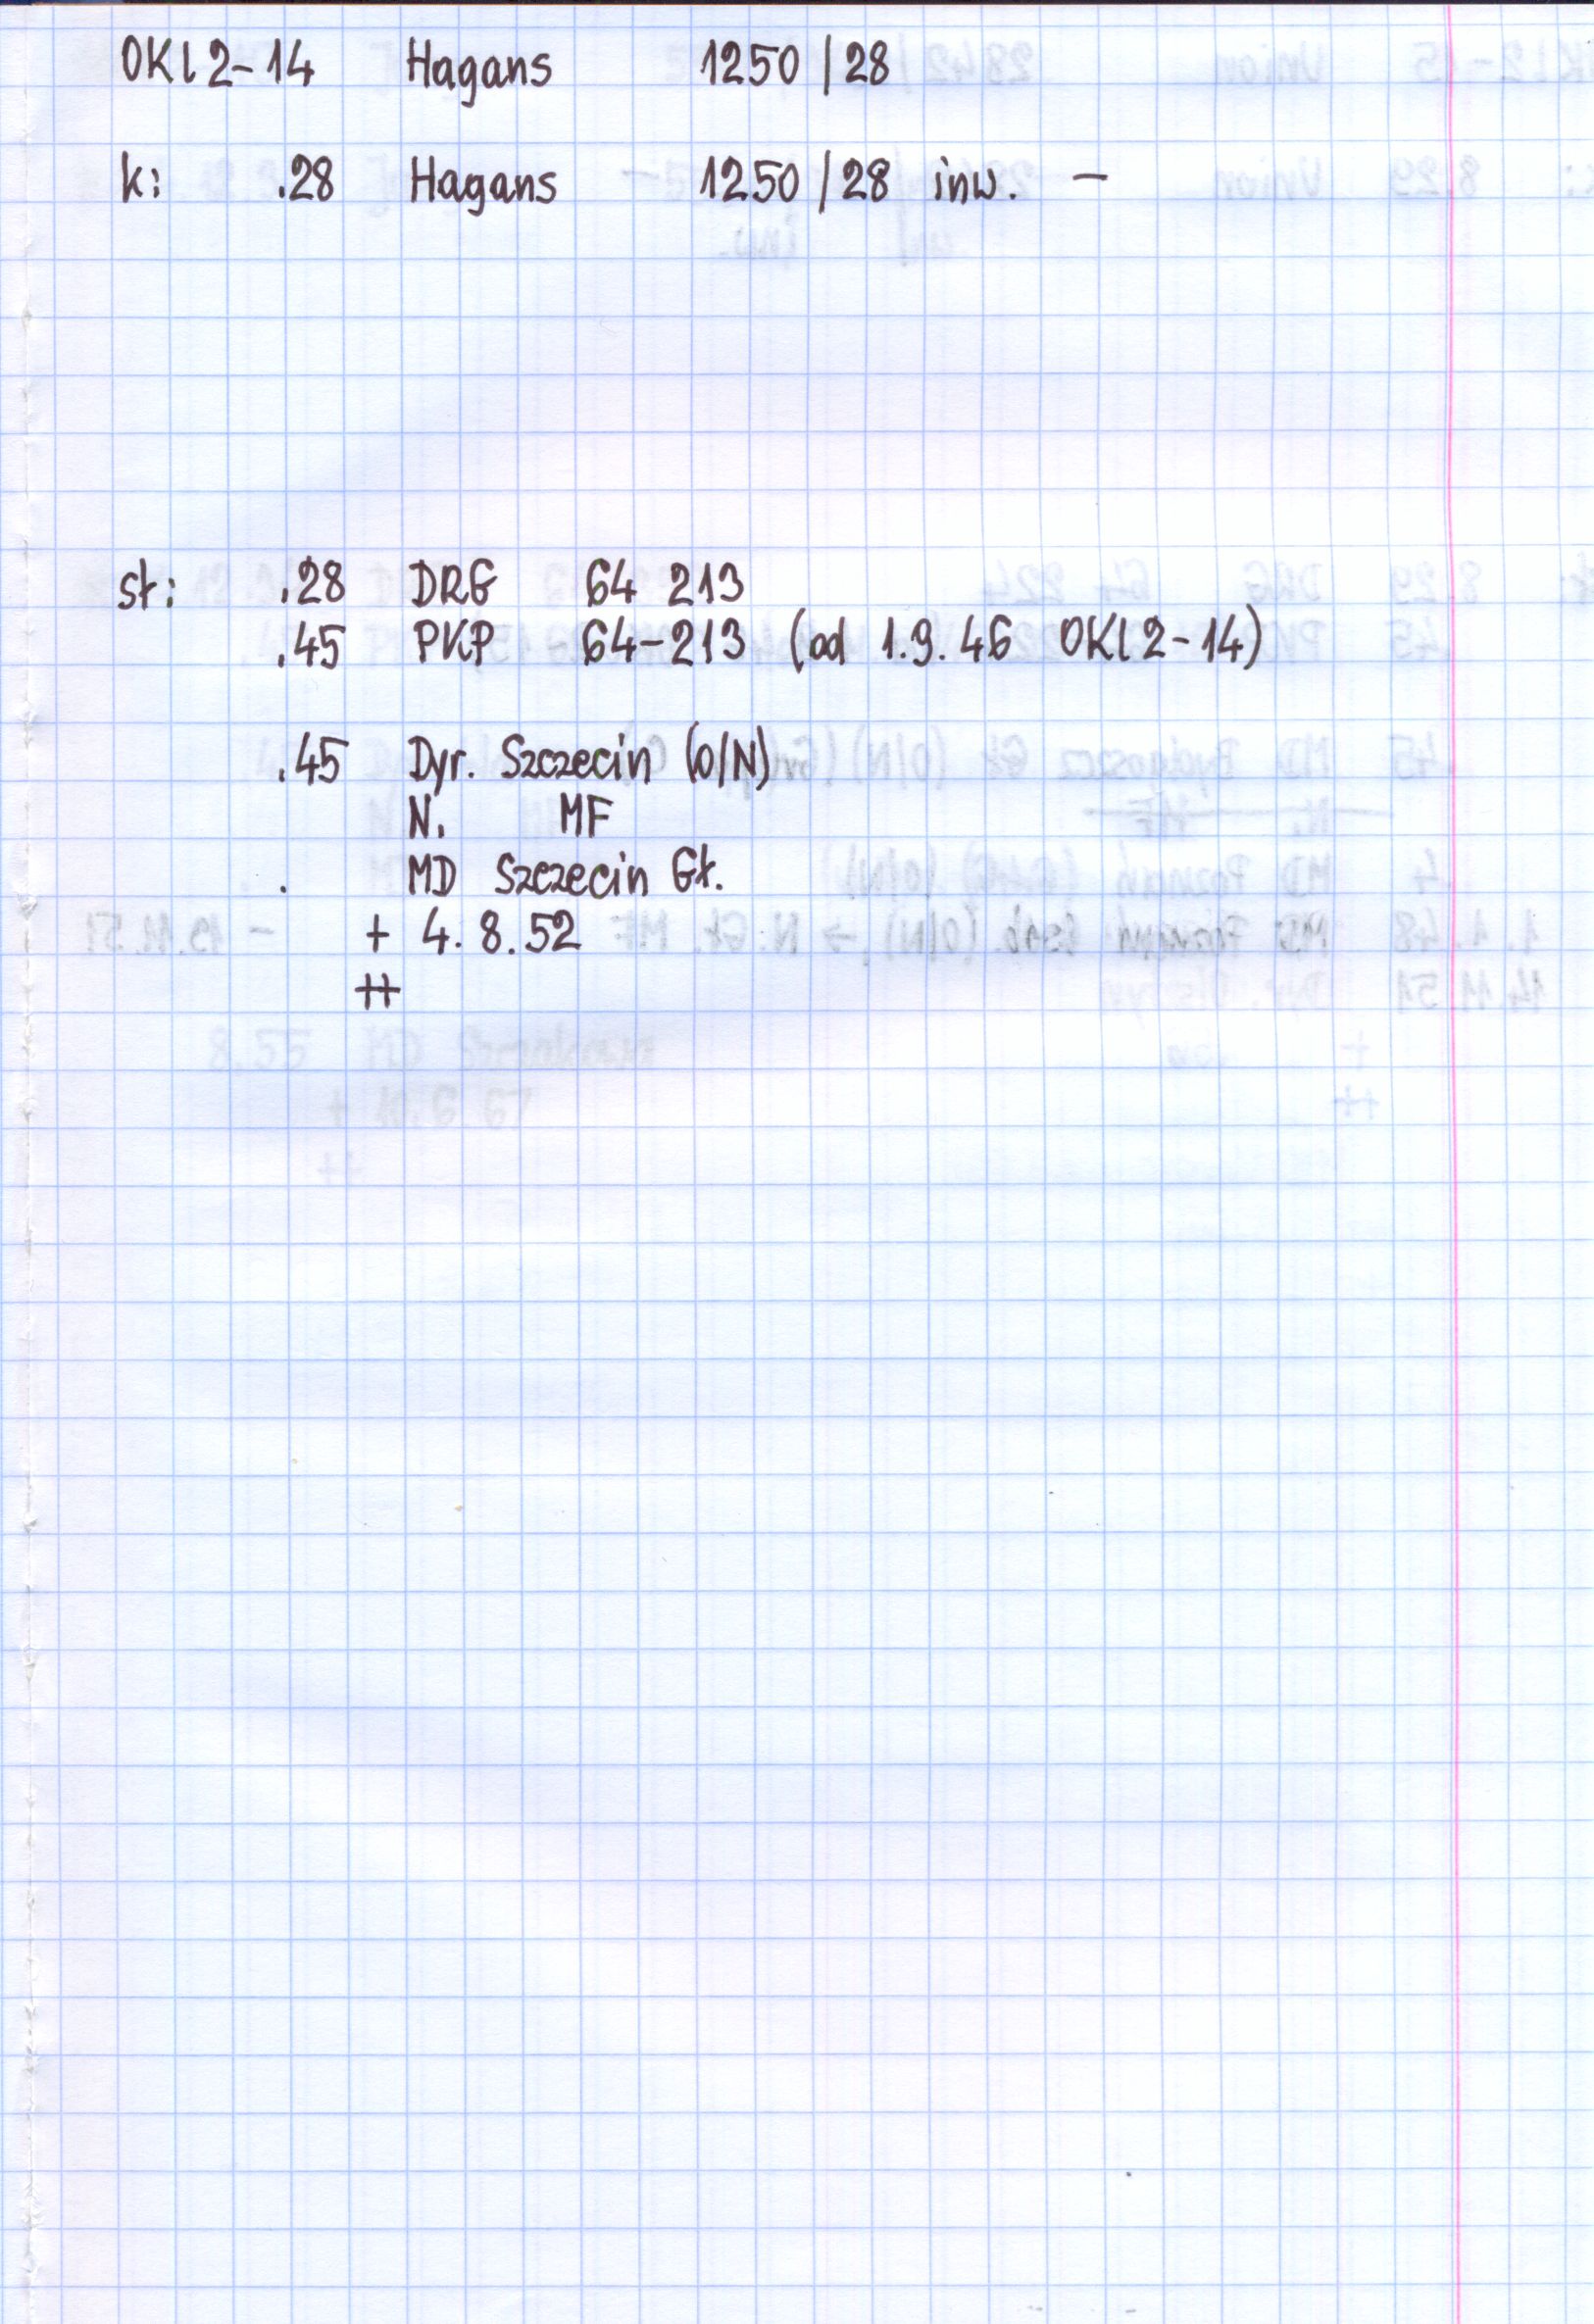 OKl2-14 Hagans 1250/28
k: .28 Hagans 1250/28 inw. –
st: .28 DRG 64 213
.45 PKP 64-213 (od 1.9.46 OKl2-14)
.45 Dyr. Szczecin (O/N)
N. MF
. MD Szczecin Gł.
+ 4.8.52
++